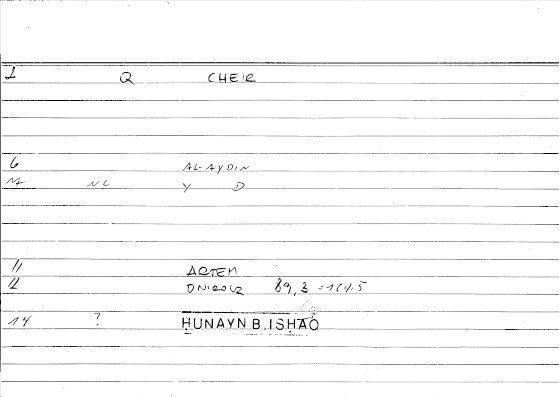 1 Q CHEIR
6 AL-AYDIN
NL Y D
11 ARTEM
12 ONIROCR 89,3 = 164.5
14 ? ḤUNAYN B. ISHAQ